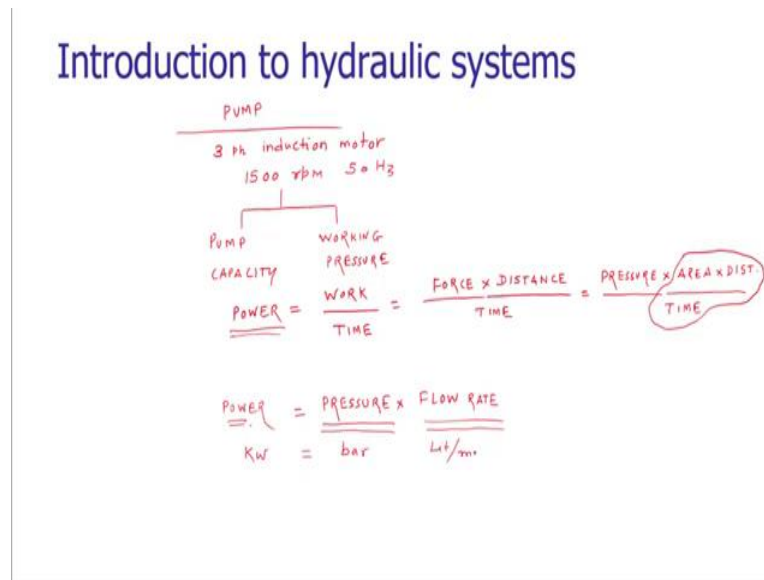 Introduction to hydraulic systems
PUMP
3 Ph induction motor
1500 rpm 50 Hz
PUMP CAPACITY
WORKING PRESSURE
POWER = WORK / TIME = FORCE × DISTANCE / TIME = PRESSURE × AREA × DIST. / TIME
POWER = PRESSURE × FLOW RATE
KW = bar Lit/m.